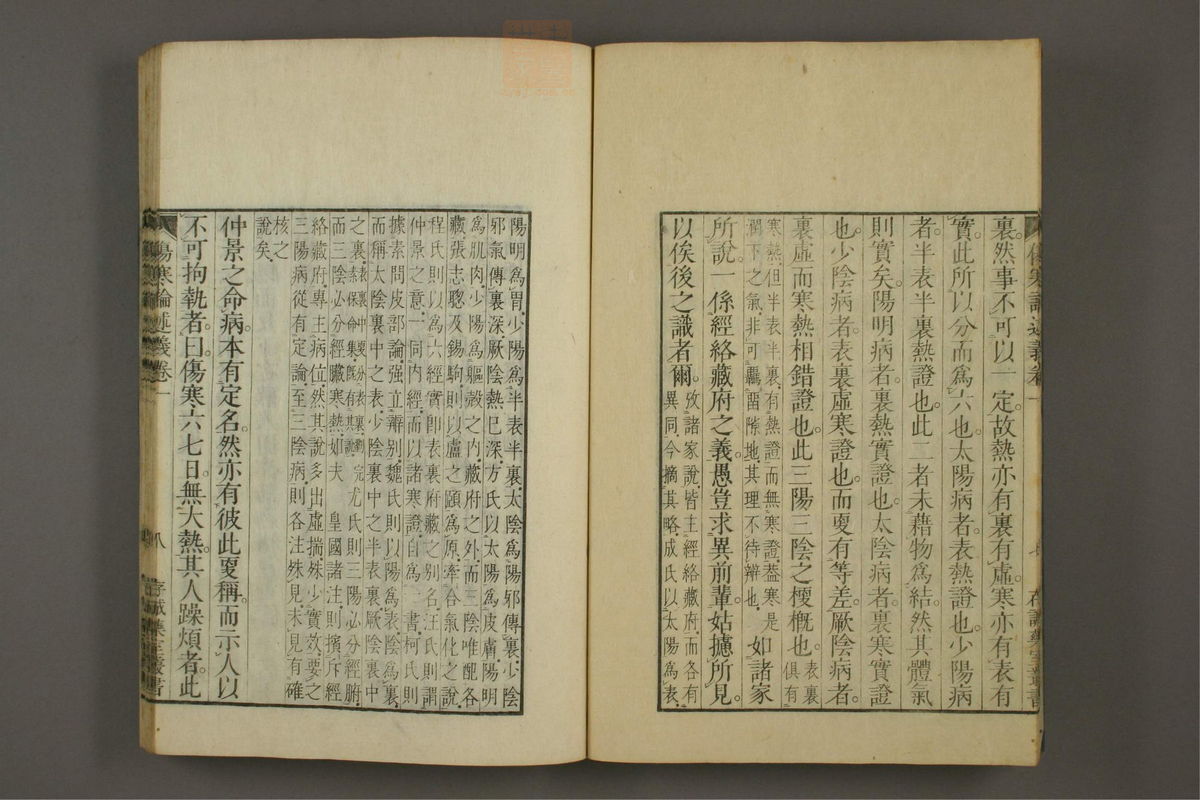 裏。然事不可以一定。故熱亦有裏有虛。寒亦有表有
實。此所以分而爲六也。太陽病者。表熱證也。少陽病
者。半表半裏熱證也。此二者未藉物爲結。然其體氣
則實矣。陽明病者。裏熱實證也。太陰病者。裏寒實證
也。少陰病者。表裏虛寒證也。而更有等差。厥陰病者。
裏虛而寒熱相錯證也。此三陽三陰之梗槪也。表裏
俱有
寒熱。但半表半裏。有熱證而無寒證。葢寒是
下之氣。非可羈留隙地。其理不待辨也。如諸家
所說。一係經絡藏府之義。愚豈求異前輩。姑攄所見。
以俟後之識者爾。攷諸家說。皆主經絡藏府。而各有
異同。今摘其略。成氏以太陽爲表。
傷寒論述義卷一
存誠藥室叢書
陽明爲胃。少陽爲半表半裏。太陰爲陽邪傳裏。少陰
邪氣傳裏深。厥陰熱已深。方氏以太陽爲皮膚。陽明
爲肌肉。少陽爲軀殼之內。藏府之外。而三陰唯配各
藏。張志聰及錫駒。則以盧之頤爲原。牽合氣化之說。
程氏則以爲六經實卽表裏府藏之別名。汪氏則謂
仲景之意。一同內經。而以諸寒證。自爲一書。柯氏則
據素問皮部論。强立辨別。魏氏則以陽爲表。陰爲裏。
而稱太陰裏中之表。少陰裏中之半表裏。厥陰裏中
之裏。
尤氏則三陽必分經腑。
而三陰必分經臟寒熱。如夫 皇國諸注。則擯斥經
絡藏府。專主病位。然其說多出虛揣。殊少實效。要之
三陽病從有定論。至三陰病。則各注殊見。未見有確
核之
說矣。
仲景之命病。本有定名。然亦有彼此更稱。而示人以
不可拘執者。曰傷寒六七日。無大熱。其人躁煩者。此
傷寒論述義卷一
八
存誠藥室叢書